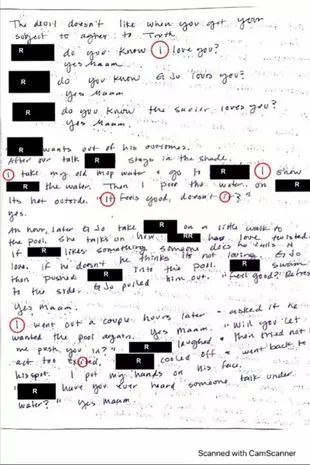 The devil doesn't like when you get your
subject to agree to Truth.
R do you know I love you?
Yes Maam.
R do you know & Jo loves you?
Yes Maam
R do you know the savior loves you?
Yes Maam.
R wants out of his outcomes.
After our talk R stays in the shade.
I take my old mop water & go to R I show
R the water. Then I pour the water on R
Its hot outside. "It feels good, doesn't it?" R
yes.
An hour later & Jo take R on a little walk to
the pool. She talks on how R has love twisted.
If R likes something someone does he calls it
love, if he doesn't he thinks its not loving. & Jo
then pushed R into the pool. R swam
to the side. & Jo pulled him out. "Feel good? Refres
Yes Maam.
I went out a couple hours later & asked if he
wanted the pool again. Yes Maam. "Will you let
me push you in?" R laughed & then tried not
act too excited. R cooled off & went back to
his spot. I put my hands on his face.
R "have you ever heard someone talk under
water?" Yes Maam.
Scanned with CamScanner